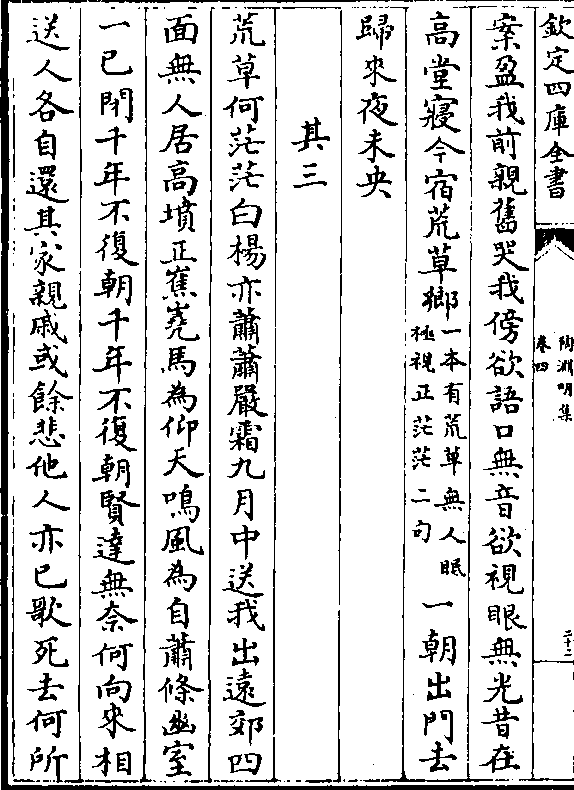 欽定四庫全書
陶淵明集
卷四
二十二
案盈我前親舊哭我傍欲語口無音欲視眼無光昔在
高堂寢今宿荒草鄉一本有荒草無人眠極視正茫茫二句一朝出門去
歸來夜未央
其三
荒草何茫茫白楊亦蕭蕭嚴霜九月中送我出遠郊四
面無人居高墳正嶣嶢馬為仰天鳴風為自蕭條幽室
一已閉千年不復朝千年不復朝賢達無奈何向來相
送人各自還其家親戚或餘悲他人亦已歌死去何所